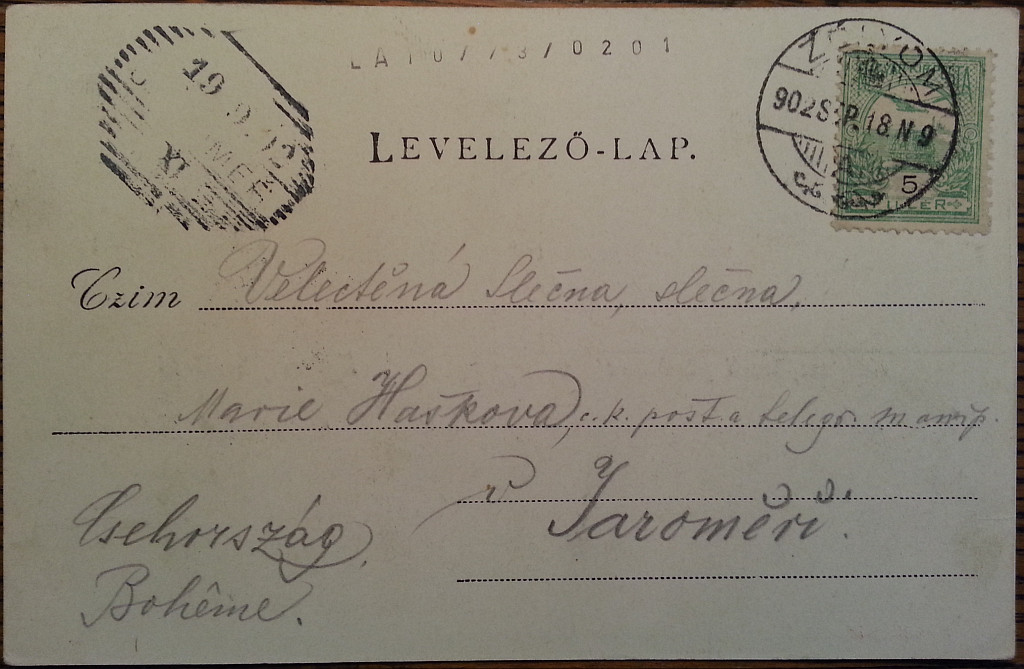 LA10773/0201
LEVELEZŐ-LAP.
ZÓLYOM
902 SEP. 18. N 9
5
FILLER
19 9
Czim Velectěná Slečna, slečna,
Marie Hašková, c. k. pošt a telegr. manip.
v Jaroměři.
Csehország,
Bohême.